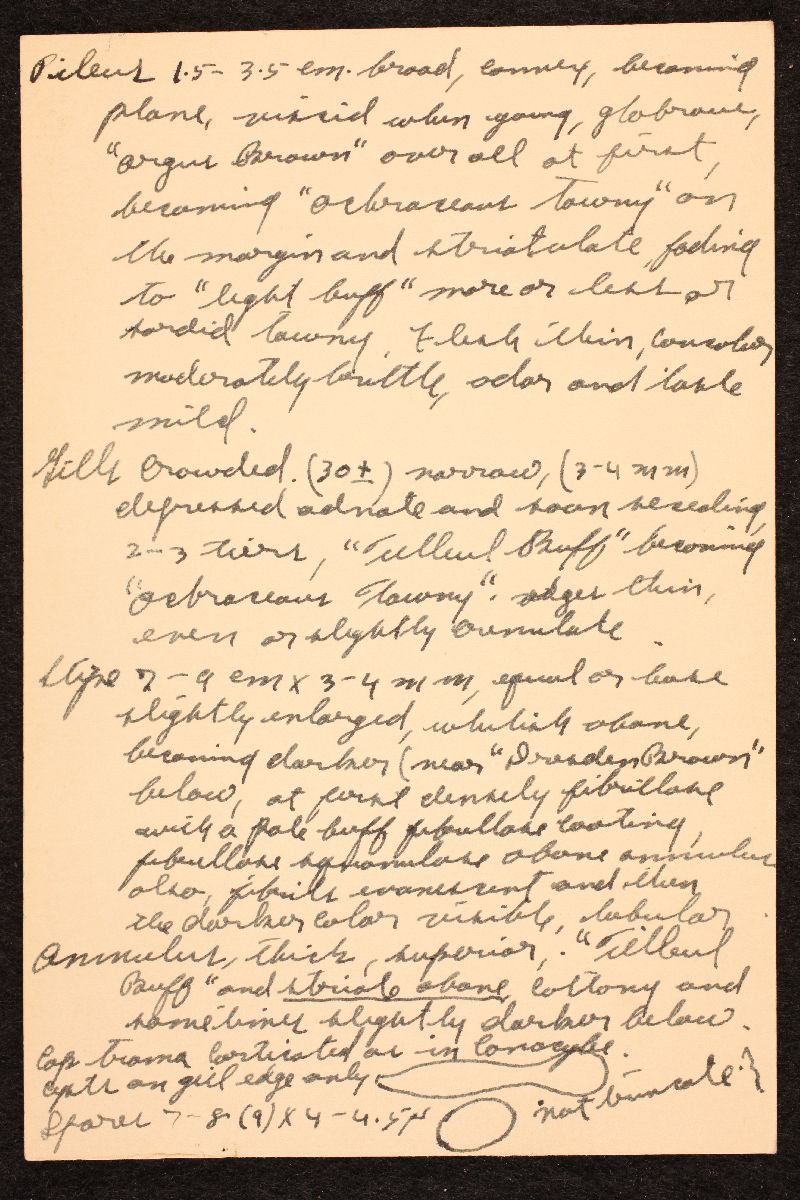 Pileus 1.5 - 3.5 cm. broad, convex, becoming
plane, viscid when young, glabrous,
"argus Brown" over all at first,
becoming "ochraceous tawny" on
the margin and striatulate, fading
to "light buff" more or less or
sordid tawny. Flesh thin, concolor,
moderately brittle, odor and taste
mild.
Gills crowded. (30±) narrow, (3-4 mm)
depressed adnate and soon seceding,
2-3 tiers, "Tilleul Buff" becoming
"ochraceous Tawny". edges thin,
even or slightly crenulate.
Stipe 7-9 cm x 3-4 mm, equal or base
slightly enlarged, whitish above,
becoming darker (near "Dresden Brown"
below, at first densely fibrillose
with a pale buff fibrillose coating,
fibrillose squamulose above annulus
also, fibrils evanescent and then
the darker color visible, tubular.
Annulus, thick, superior, "Tilleul
Buff" and striate above, cottony and
sometimes slightly darker below.
Cap trama corticated as in Conocybe.
Cysts on gill edge only
not truncate.}
Spores 7-8 (9) x 4-4.5µ